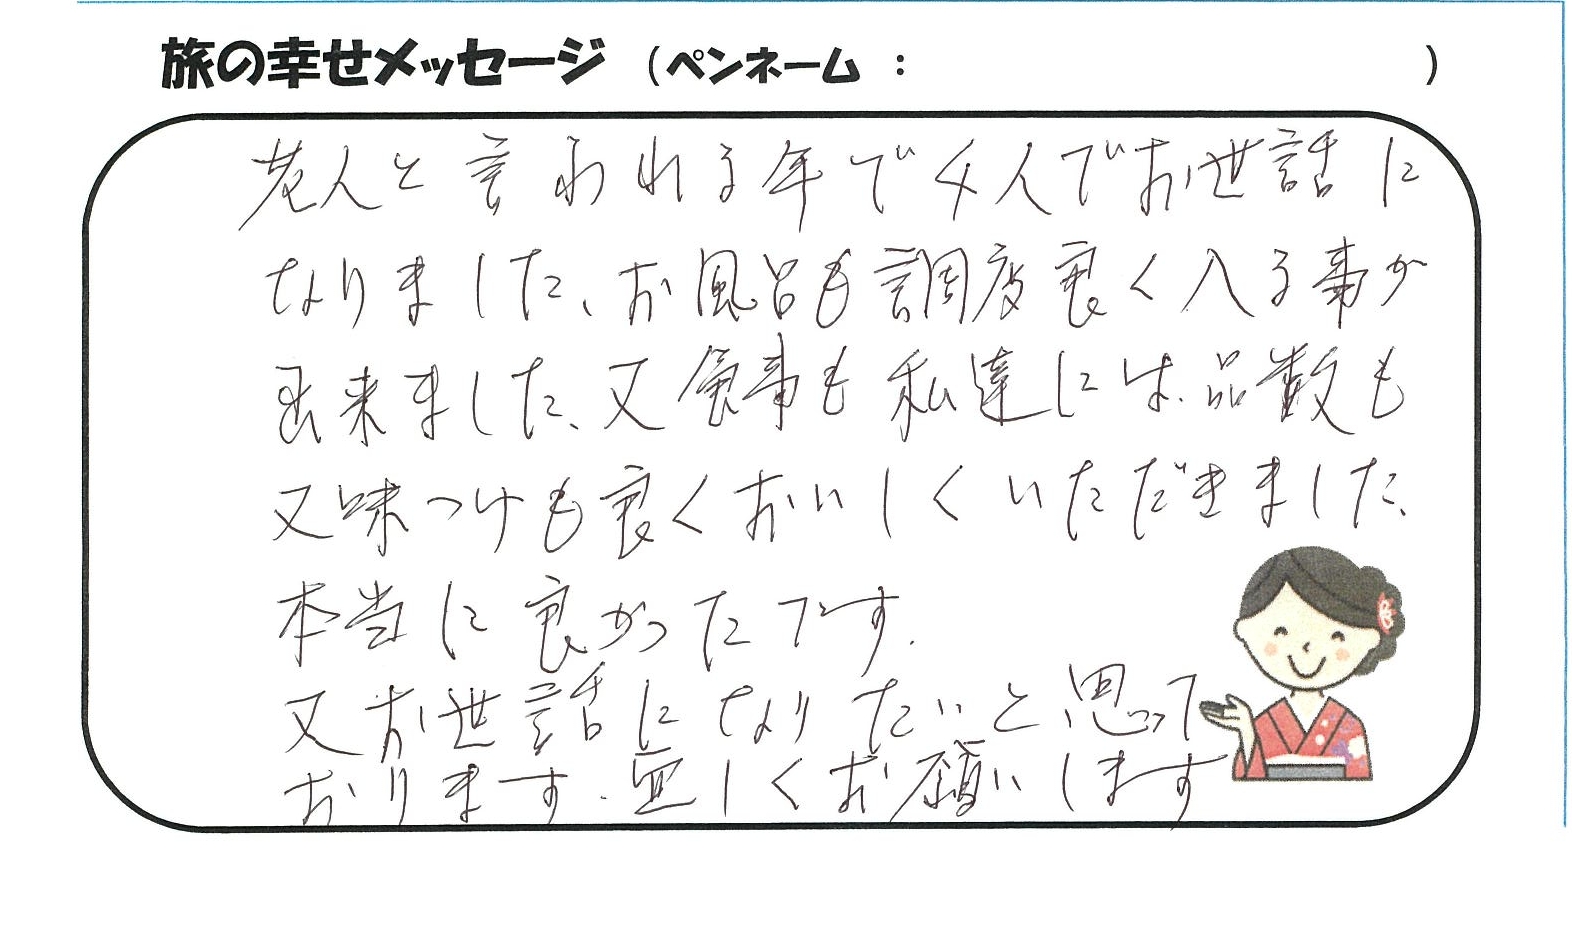 旅の幸せメッセージ （ペンネーム ： ）
老人と言われる年で4人でお世話に
なりました、お風呂も調度良く入る事が
出来ました、又食事も私達には、品数も
又味つけも良くおいしくいただきました、
本当に良かったです.
又お世話になりたいと思って
おります.宜しくお願いします